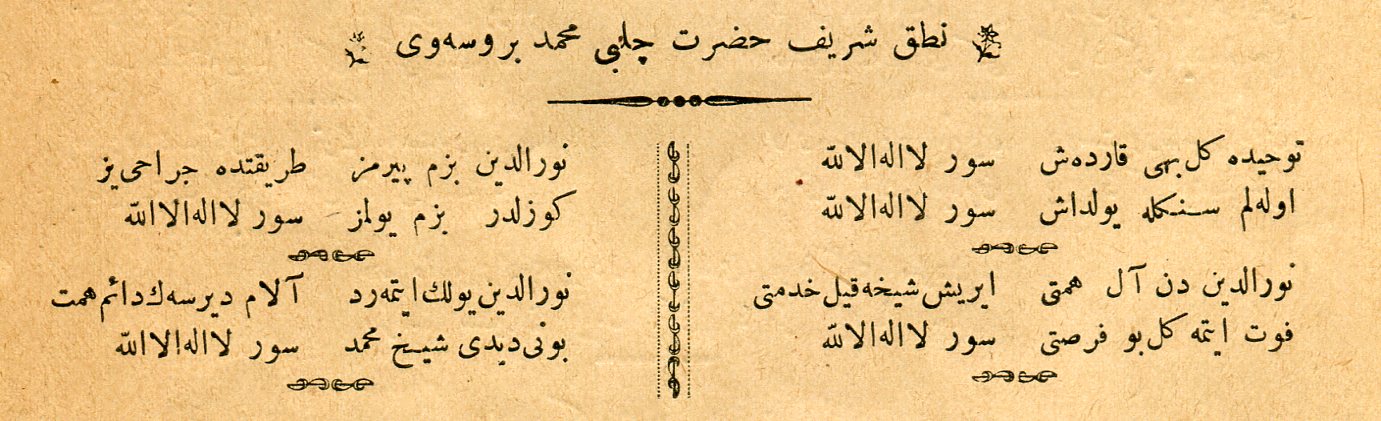 نطق شریف حضرت چلبی محمد بروسه‌وی
توحیده کل بهی قارده‌ش سور لااله‌الاالله
اوله‌لم سنکله یولداش سور لااله‌الاالله
نورالدین دن آل همتی ایریش شیخه قیل خدمتی
فوت ایتمه کل بو فرصتی سور لااله‌الاالله
نورالدین بزم پیرمز طریقتده جراحی‌یز
کوزلدر بزم یولمز سور لااله‌الاالله
نورالدین یولك ایتمه‌رد آلام دیرسه‌ك دائم همت
بونی دیدی شیخ محمد سور لااله‌الاالله